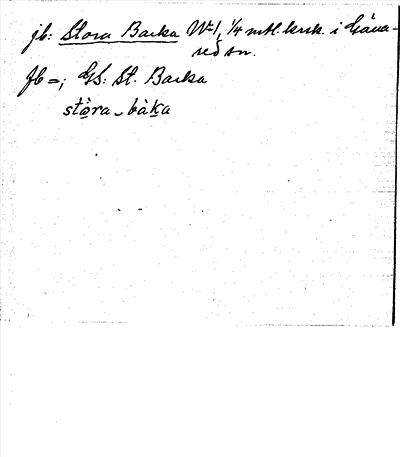 jb: Stora Backa Nr 1, 1/4 mtl. krsk. i Gäva-
red sn.
Jb =; GS: St. Backa
stòra - bàka